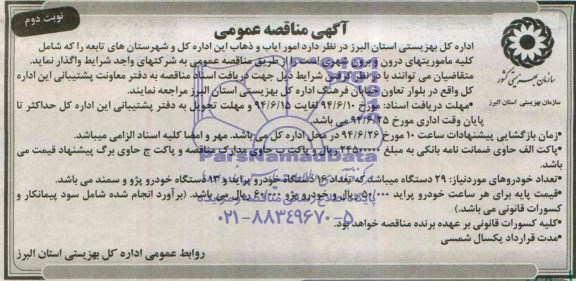 نوبت دوم
آگهی مناقصه عمومی
سازمان بهزیستی کشور
سازمان بهزیستی استان البرز
اداره کل بهزیستی استان البرز در نظر دارد امور ایاب و ذهاب این اداره کل و شهرستان های تابعه را که شامل
کلیه ماموریتهای درون و برون شهری است را از طریق مناقصه عمومی به شرکتهای واجد شرایط واگذار نماید.
متقاضیان می توانند با در نظر گرفتن شرایط ذیل جهت دریافت اسناد مناقصه به دفتر معاونت پشتیبانی این اداره
کل واقع در بلوار تعاون خیابان فرهنگ اداره کل بهزیستی استان البرز مراجعه نمایند.
•مهلت دریافت اسناد: مورخ ۹۴/۶/۱۰ لغایت ۹۴/۶/۱۵ و مهلت تحویل به دفتر پشتیبانی این اداره کل حداکثر تا
پایان وقت اداری مورخ ۹۴/۶/۲۵ می باشد.
•زمان بازگشایی پیشنهادات ساعت ۱۰ مورخ ۹۴/۶/۲۶ در محل اداره کل می باشد. مهر و امضا کلیه اسناد الزامی میباشد.
•پاکت الف حاوی ضمانت نامه بانکی به مبلغ ریال و پاکت ب حاوی مدارک مناقصه و پاکت ج حاوی برگ پیشنهاد قیمت می
باشد.
•تعداد خودروهای موردنیاز: ۲۹ دستگاه میباشد که تعداد ۱۶ دستگاه خودرو پراید و ۱۳ دستگاه خودرو پژو و سمند می باشد.
•قیمت پایه برای هر ساعت خودرو پراید ریال و خودرو پژو ریال می باشد. (برآورد انجام شده شامل سود پیمانکار و
کسورات قانونی می باشد.)
•کلیه کسورات قانونی بر عهده برنده مناقصه خواهد بود.
•مدت قرارداد یکسال شمسی
روابط عمومی اداره کل بهزیستی استان البرز
ParsNamadData
۰۲۱-۸۸۳۴۹۶۷۰-۵